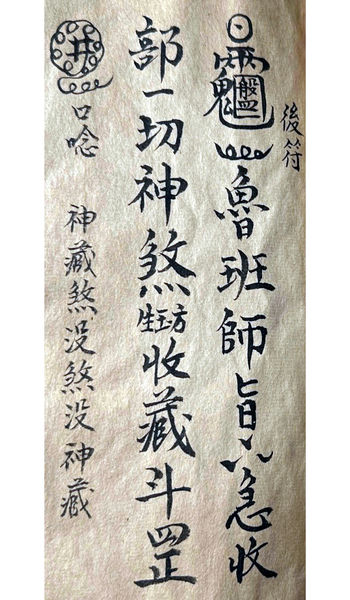 後符
魯班師旨急收
部一切神煞生王方收藏斗罡
井口唸 神藏煞没煞没神藏